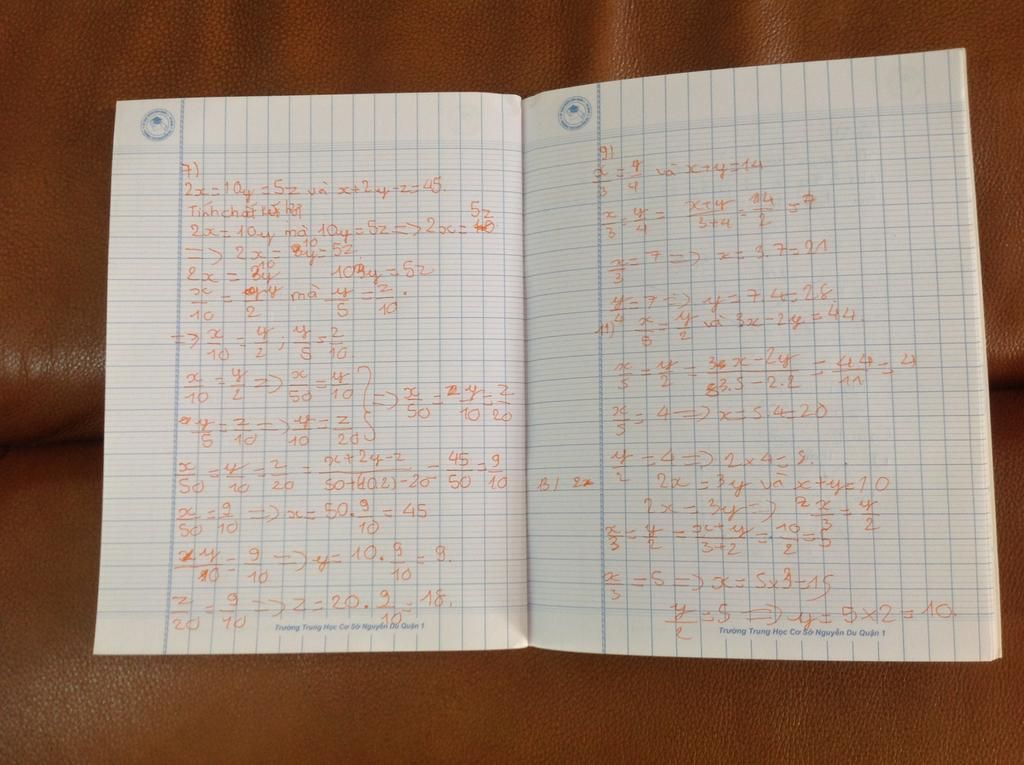 7)
2x=10y=5z và x+2y-z=45.
Tính chất
2x=10y mà 10y=5z=>2x=5z
=> 2x=10y=5z.
2x=10y 10y=5z
x/10=y/2 mà y/5=z/10.
=> x/10=y/2; y/5=z/10.
x/10=y/2=>x/50=y/10
y/5=z/10=>y/10=z/20 } => x/50=y/10=z/20
x/50=y/10=z/20=(x+2y-z)/(50+(10.2)-20)=45/50=9/10
x/50=9/10=>x=50.9/10=45
y/10=9/10=>y=10.9/10=9.
z/20=9/10=>z=20.9/10=18.
Trường Trung Học Cơ Sở Nguyễn Du Quận 1
9)
x/3=y/4 và x+y=14
x/3=y/4=(x+y)/(3+4)=14/2=7
x/3=7=>x=3.7=21
y/4=7=>y=7.4=28.
11) x/5=y/2 và 3x-2y=44.
x/5=y/2=(3x-2y)/(3.5-2.2)=44/11=4
x/5=4=>x=5.4=20
y/2=4=>2×4=8.
13) 2x=3y và x+y=10
2x=3y=>x/3=y/2
x/3=y/2=(x+y)/(3+2)=10/2=5
x/3=5=>x=5×3=15
y/2=5=>y=5×2=10.
Trường Trung Học Cơ Sở Nguyễn Du Quận 1